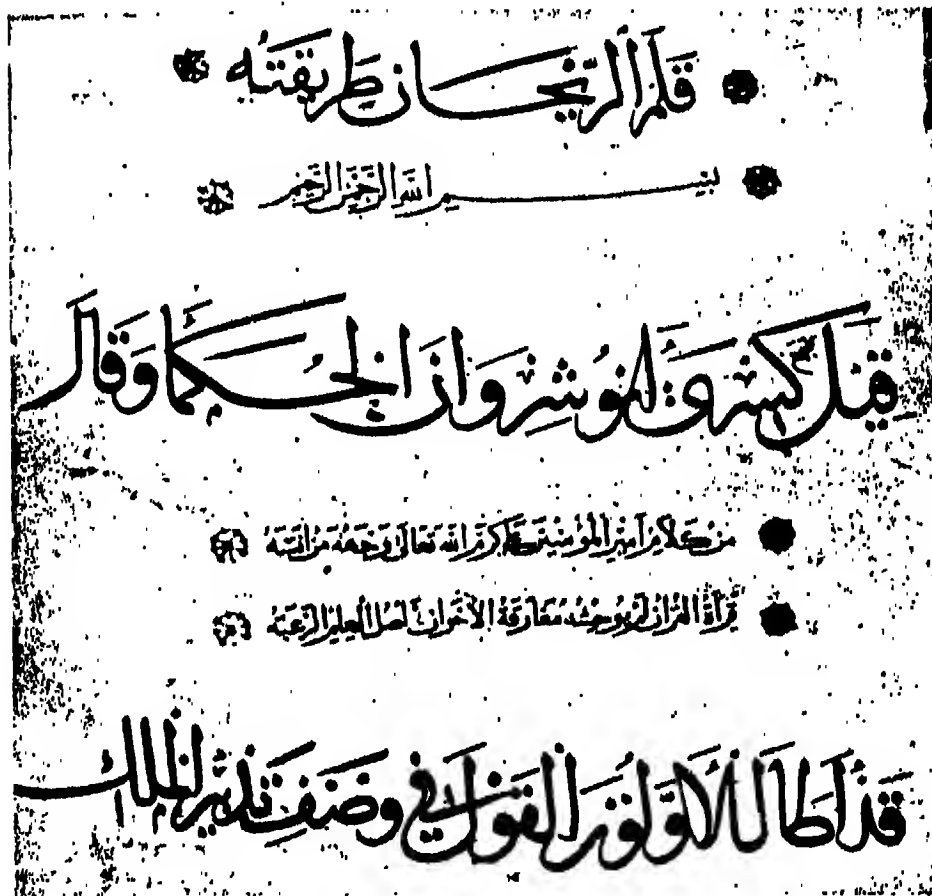 قلم الريحان طريقته
بسم الله الرحمن الرحيم
قيل لكسرى أنوشروان الحكما وقال
من كلام أمير المؤمنين كرم الله تعالى وجهه من آنسه
قراءة القرآن لم يوحشه مفارقة الاخوان أصل العلم الرغبة
قد أطال الأولون القول في وصف تدبير الملك